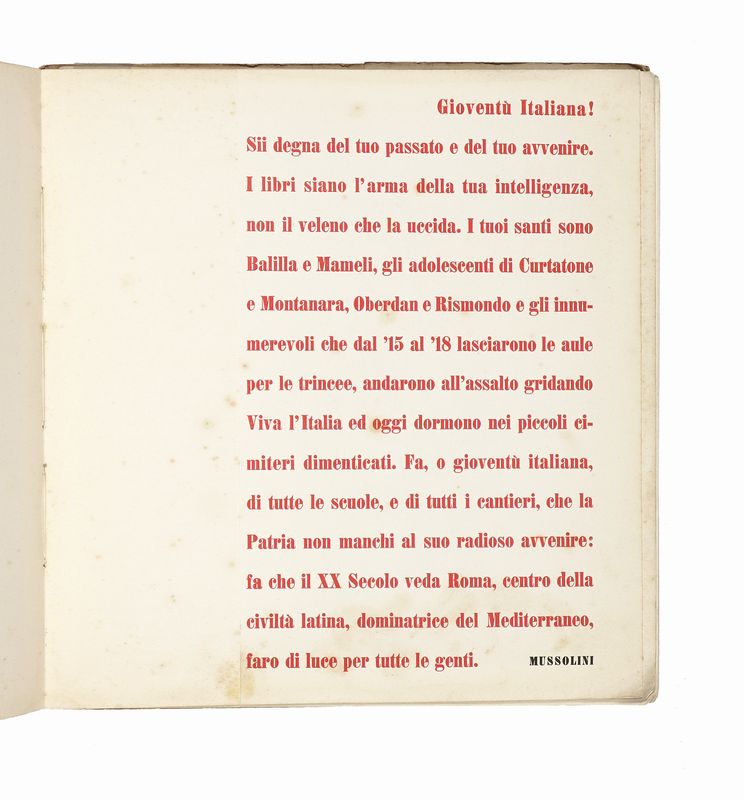 Gioventù Italiana!
Sii degna del tuo passato e del tuo avvenire.
I libri siano l'arma della tua intelligenza,
non il veleno che la uccida. I tuoi santi sono
Balilla e Mameli, gli adolescenti di Curtatone
e Montanara, Oberdan e Rismondo e gli innu-
merevoli che dal '15 al '18 lasciarono le aule
per le trincee, andarono all'assalto gridando
Viva l'Italia ed oggi dormono nei piccoli ci-
miteri dimenticati. Fa, o gioventù italiana,
di tutte le scuole, e di tutti i cantieri, che la
Patria non manchi al suo radioso avvenire:
fa che il XX Secolo veda Roma, centro della
civiltà latina, dominatrice del Mediterraneo,
faro di luce per tutte le genti. MUSSOLINI